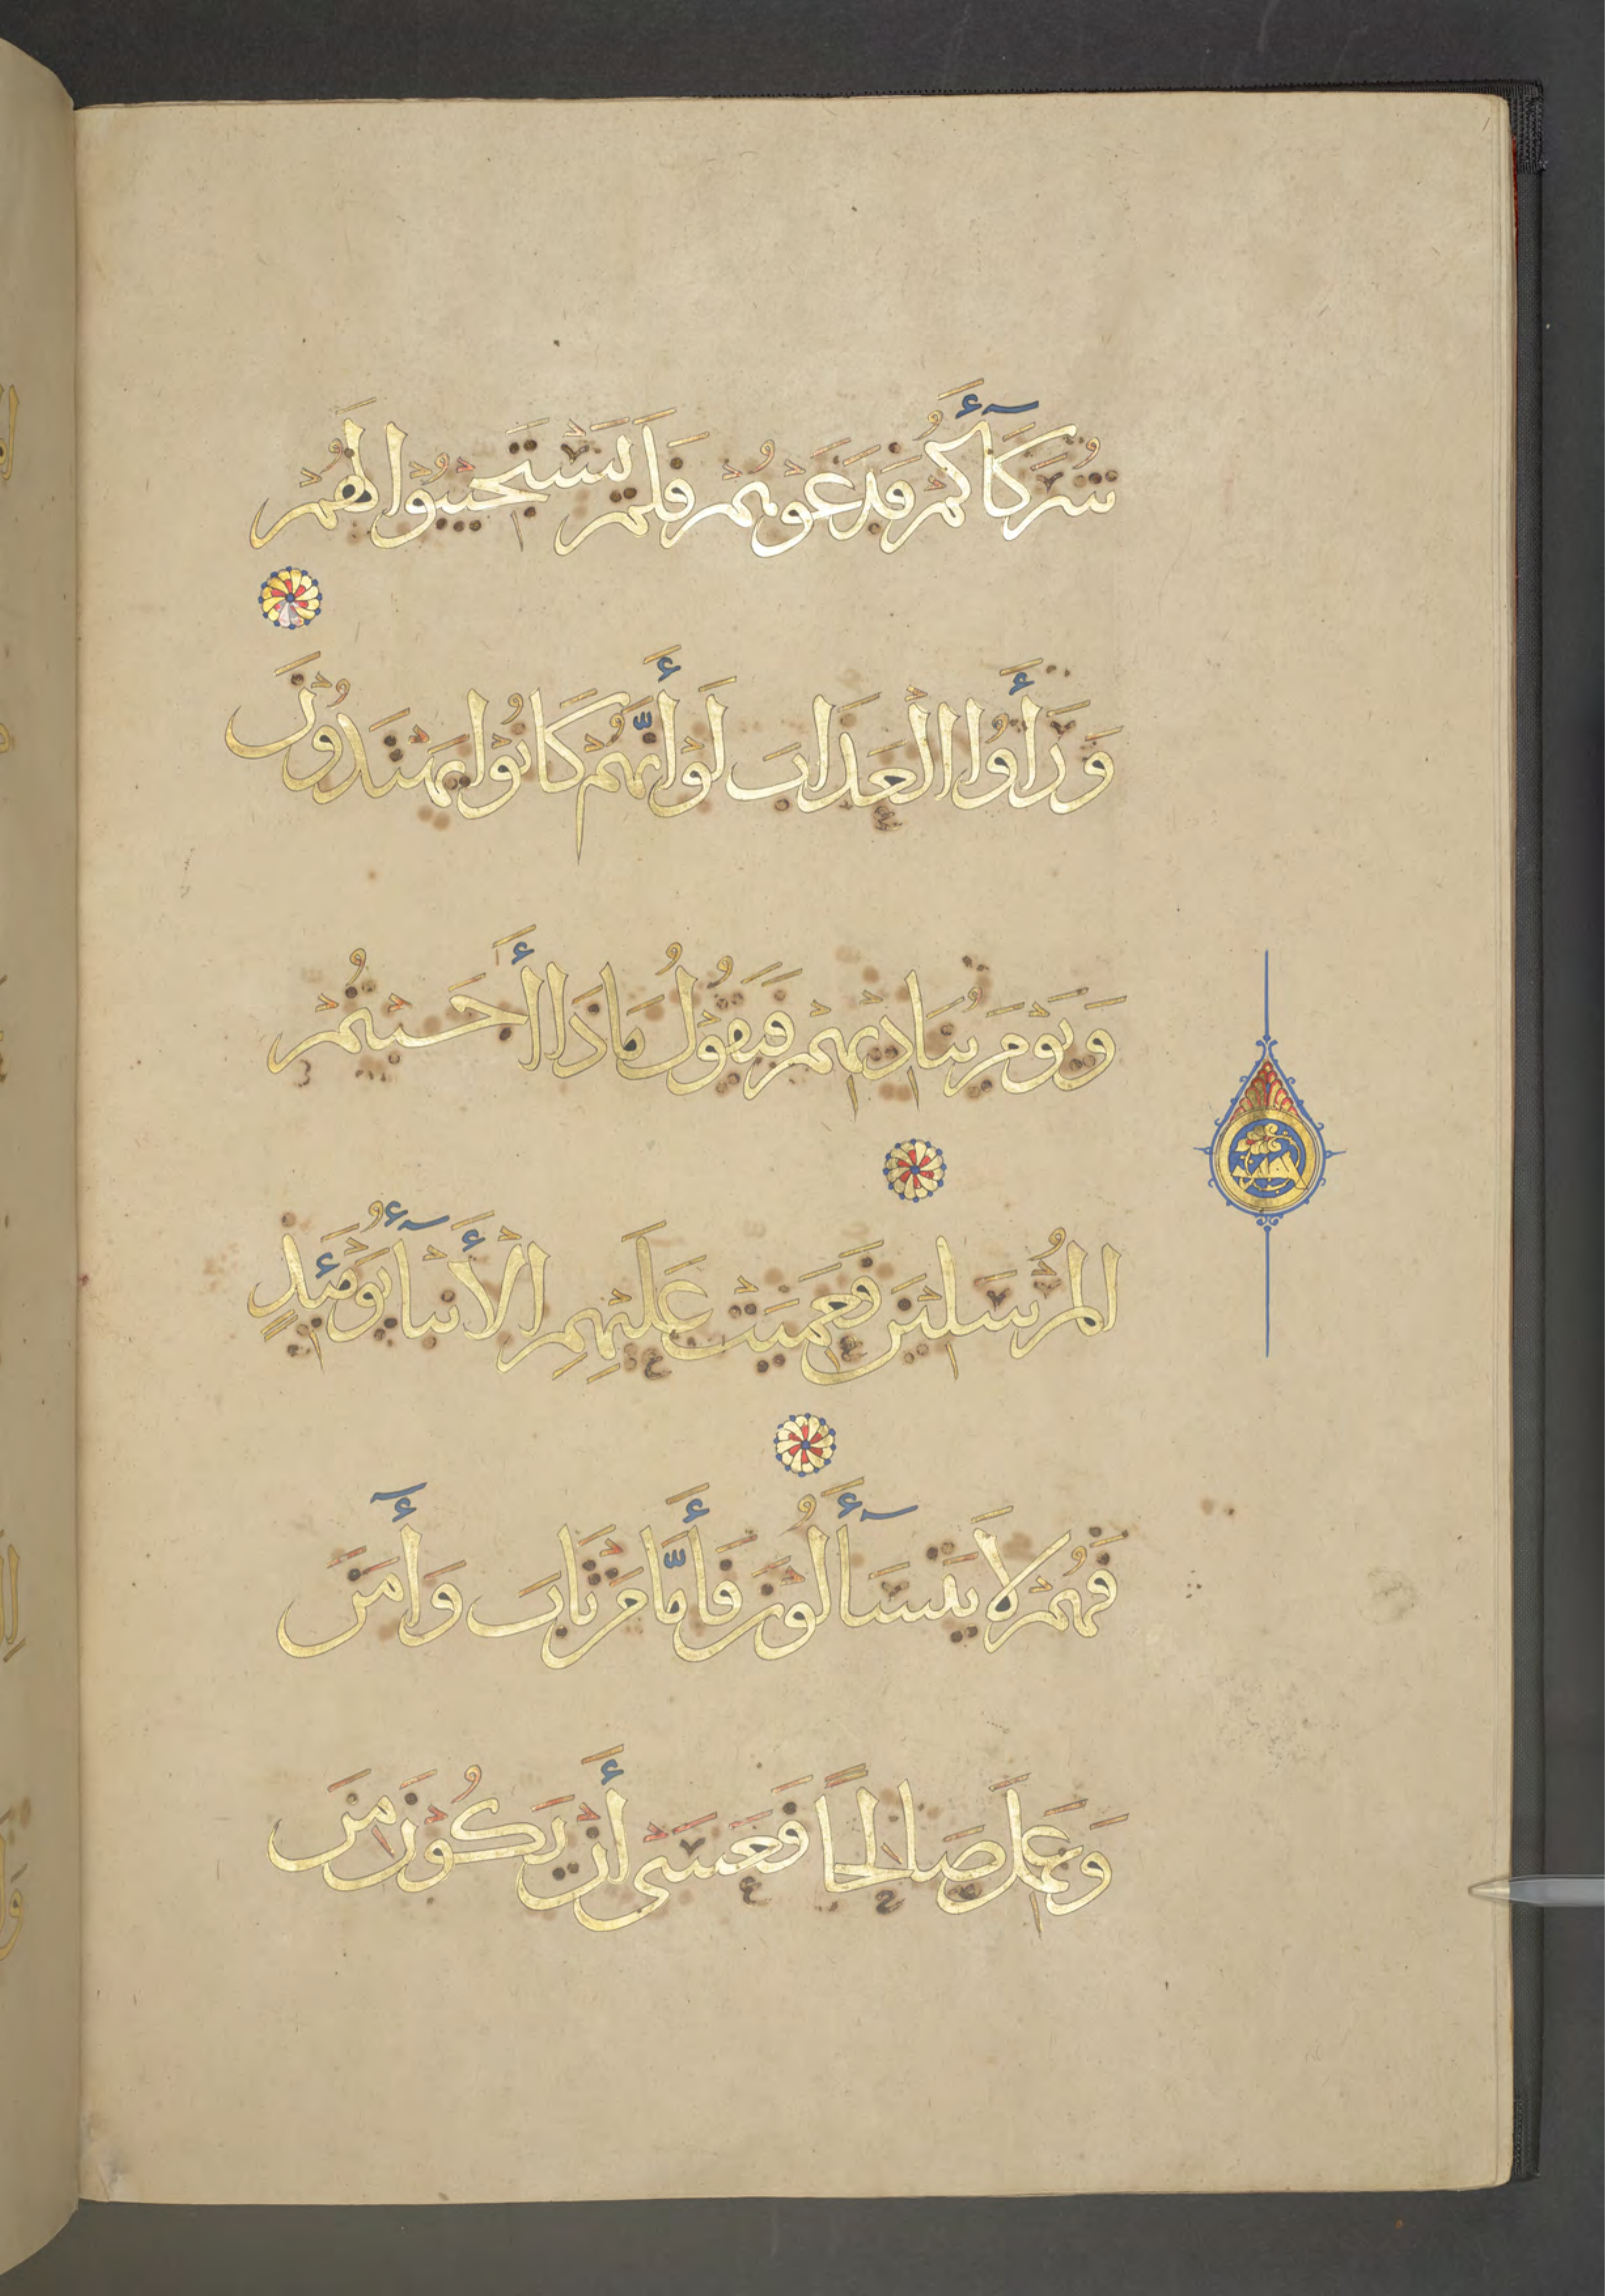 شُرَكَآءَكُمْ فَدَعَوْهُمْ فَلَمْ يَسْتَجِيْبُوْا لَهُمْ
وَرَأَوُا الْعَذَابَ لَوْ أَنَّهُمْ كَانُوْا يَهْتَدُوْنَ
وَيَوْمَ يُنَادِيْهِمْ فَيَقُوْلُ مَاذَا أَجَبْتُمُ
الْمُرْسَلِيْنَ فَعَمِيَتْ عَلَيْهِمِ الْأَنْبَآءُ يَوْمَئِذٍ
فَهُمْ لَا يَتَسَآءَلُوْنَ فَأَمَّا مَنْ تَابَ وَأٓمَنَ
وَعَمِلَ صَالِحًا فَعَسَى أَنْ يَكُوْنَ مِنَ